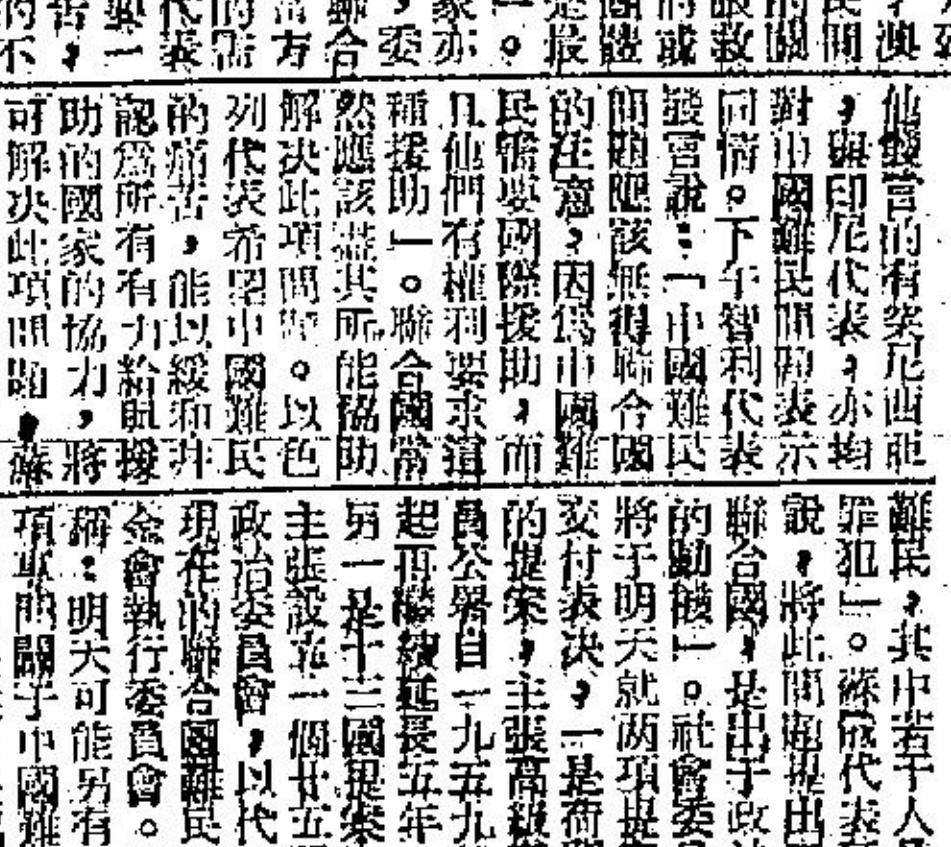 澳
民間
的關
眼救
或
體
是最
一。
家亦
，委
聯合
常方
的需
代表
與一
苦，
的不
他發言的有突尼西亞
，與印尼代表，亦均
對中國難民問題表示
同情。下午智利代表
發言說：「中國難民
問題應該無得聯合國
的注意，因爲中國難
民需要國際援助，而
且他們有權利要求這
種援助」。聯合國常
然應該盡其所能協助
解决此項問題。以色
列代表希望中國難民
的痛苦，能以緩和并
認爲所有有力給援
助的國家的協力，將
可解决此項問題，蘇
難民，其中若干人
罪犯」。蘇俄代表
說，將此問題提出
聯合國，是出于政
的動機」。社會委
將于明天就两項提
交付表决，一是荷
的提案，主張高級
員公署自一九五九
起再繼續延長五年
另一是十三國提案
主張設立一個廿五
政治委員會，以代
現在的聯合國難民
金會執行委員會。
稱：明天可能另有
項專門關于中國難